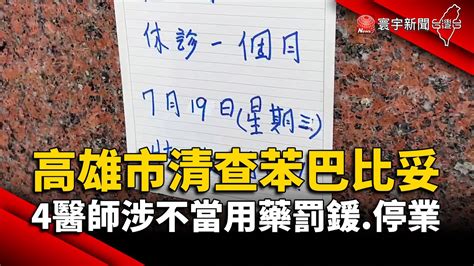 寰宇新聞 台灣台
News
休診一個月
7月19日(星期三)
高雄市清查苯巴比妥
4醫師涉不當用藥罰鍰.停業